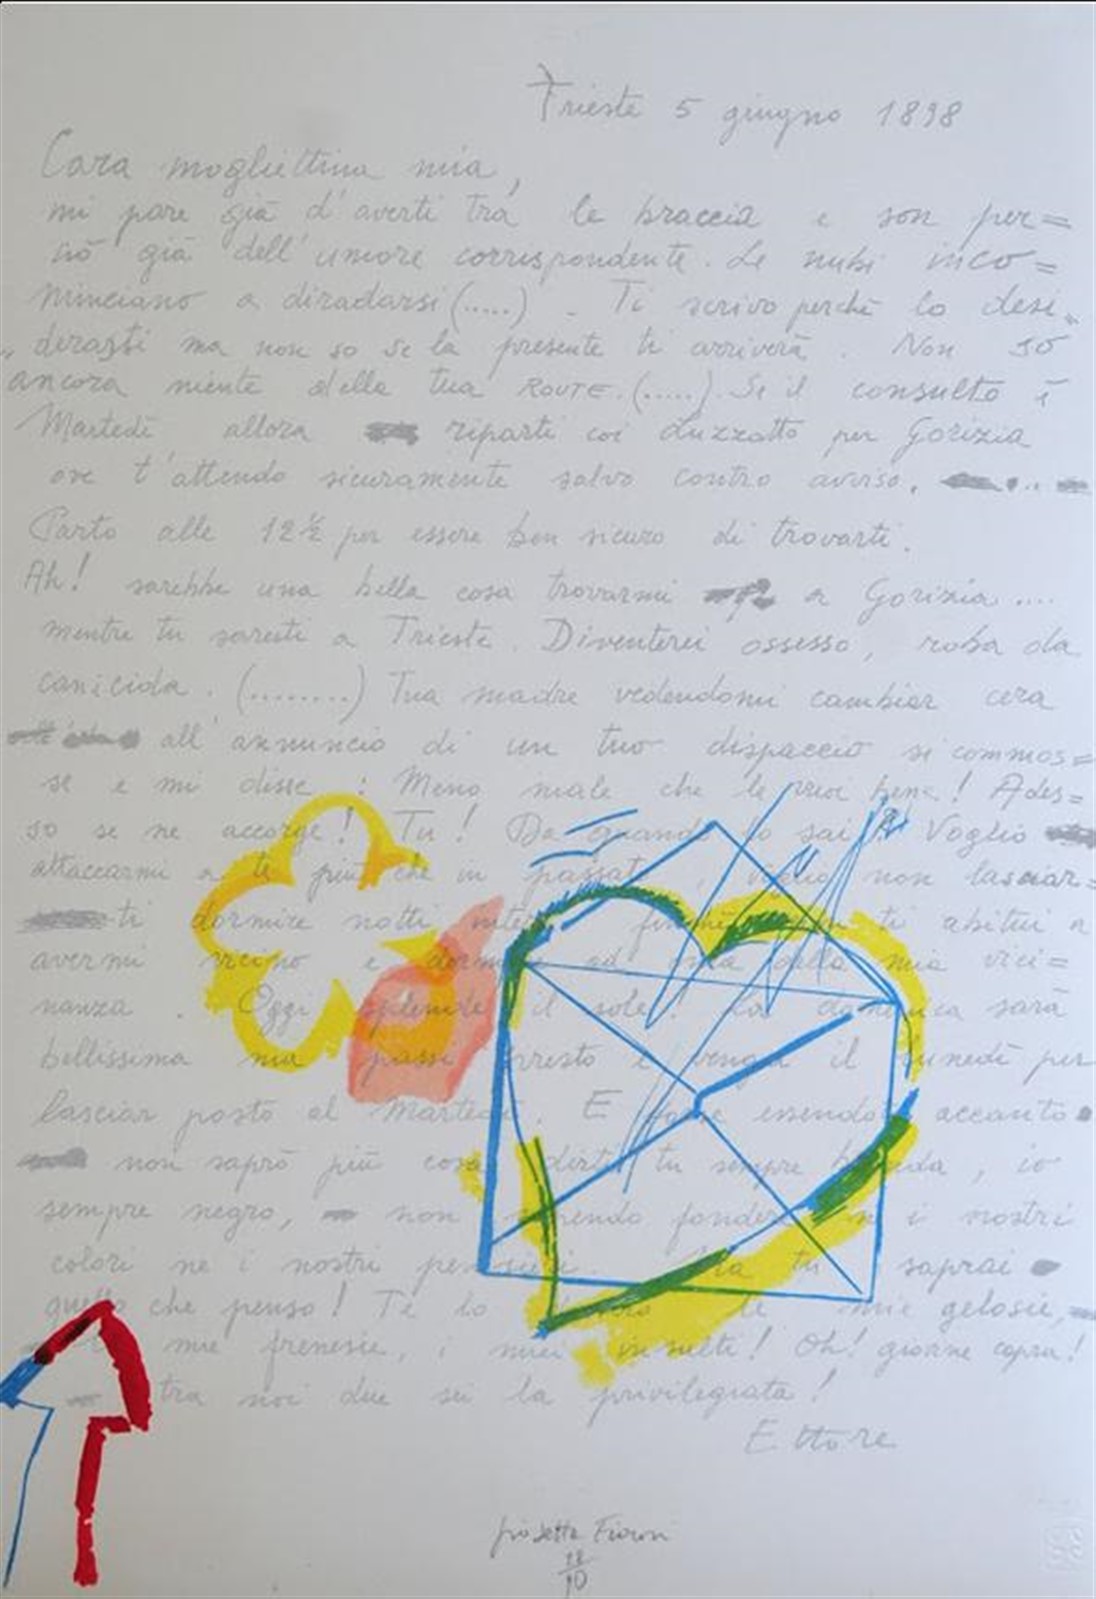 Trieste 5 giugno 1898
Cara mogliettina mia,
mi pare già d'averti tra le braccia e son per=
ciò già dell'umore corrispondente. Le nubi inco=
minciano a diradarsi (.....) - Ti scrivo perchè lo desi„
„ derasti ma non so se la presente ti arriverà. Non so
ancora niente della tua ROUTE. (.....). Se il consulto è
Martedì allora riparti coi Luzzatto per Gorizia
ove t'attendo sicuramente salvo contro avviso.
Parto alle 12½ per essere ben sicuro di trovarti.
Ah! sarebbe una bella cosa trovarmi a Gorizia ....
mentre tu saresti a Trieste. Diventerei ossesso, roba da
canicida. (........) Tua madre vedendomi cambiar cera
all'annuncio di un tuo dispaccio si commos=
se e mi disse : Meno male che le vuol bene! Ades=
so se ne accorge! Tu! Da quando lo sai? Voglio
attaccarmi a te più che in passato, voglio non lasciar=
ti dormire notti intere finchè non ti abitui a
avermi vicino e dormire ad onta della mia vici=
nanza. Oggi splende il sole! La domenica sarà
bellissima ma passi presto e venga il lunedì per
lasciar posto al Martedì. E forse essendo accanto
non saprò più cosa dirti tu sempre bionda, io
sempre negro, non sapendo fondere nè i nostri
colori nè i nostri pensieri. Ma tu saprai
quello che penso! Te lo le mie gelosie,
mie frenesie, i miei insulti! Oh! giovane capra!
tra noi due sei la privilegiata!
Ettore
Giosetta Fioroni